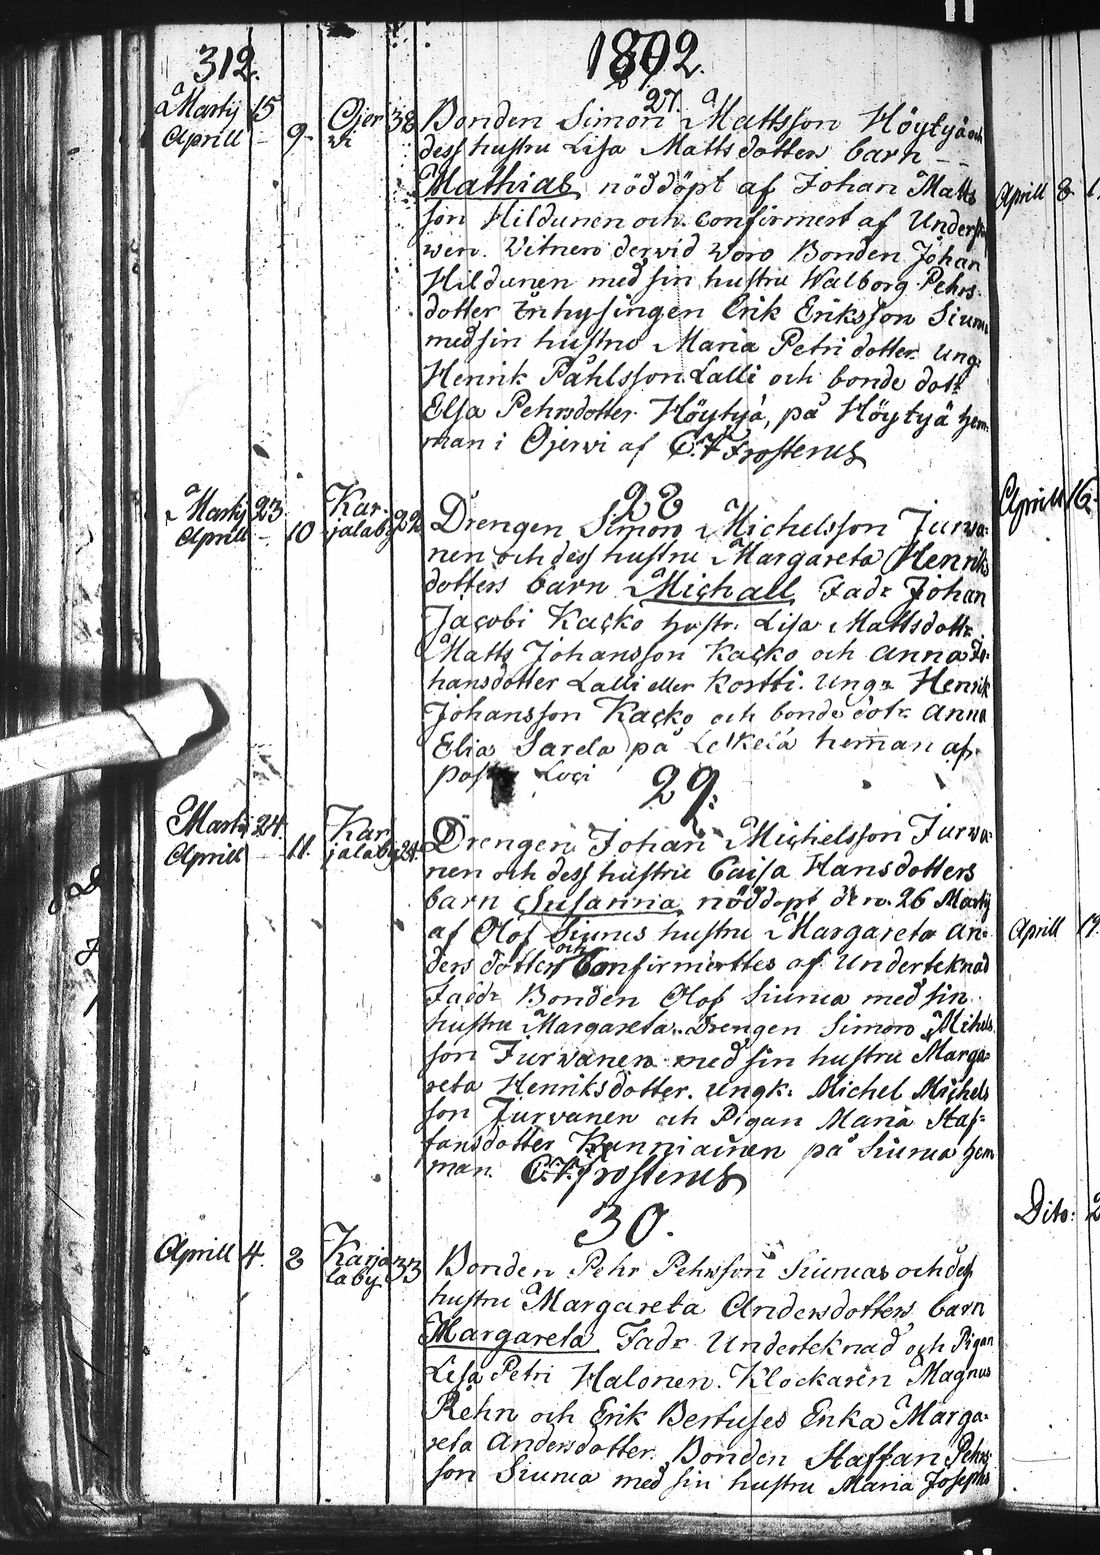 312.
1802.
27.
Martij 15 Ojer 38 Bonden Simon Mattsson Höytyä och
Aprill - 9. wi dess hustru Lisa Matts dotters barn - -
Mathias nöddöpt af Johan Matts
son Hildunen och confirmert af Under
Witnen dervid woro Bonden Johan
Hildunen med sin hustru Walborg Pehrs
dotter Inhysingen Erik Eriksson Sium
med sin hustru Maria Petri dotter Ung:
Henrik Påhlsson Lalli och bonde dotr
Elsa Pehrsdotter Höytyä, på Höytyä hem:
man i Ojerwi af C.F. Frosterus
28
Martij 23 Kar- 22 Drengen Simon Michelsson Jurwa:
Aprill - 10 jalaby nen och dess hustru Margareta Henriks
dotters barn Michall Fadr Johan
Jacobi Kacko hustr. Lisa Mattsdottr.
Matts Johansson Kacko och Anna Jo:
hansdotter Lalli eller Kortti. Ungr Henrik
Johansson Kacko och bonde dotr Anna
Elia Sarela på heman af
Loci
29.
Martij 24. Kar 24. Drengen Johan Michelsson Jurwa:
Aprill - 11. jalaby nen och dess hustru Caisa Hansdotters
barn Susanna nöddöpt den 26 Martij
af Olof Siunus hustru Margareta An:
ders dotter och Confirmerttes af Underteknad
Faddr Bonden Olof Siunia med sin
hustru Margareta. Drengen Simon Michels
son Jurwanen med sin hustru Marga:
reta Henriksdotter. Ungk: Michel Michels
son Jurvanen och Pigan Maria Staf:
fansdotter Kunniainen på Siunia hem
man. C.F. Frosterus
30.
Aprill 4. 2 Karja 33 Bonden Pehr Pehrsson Siunias och dess
laby hustru Margareta Andersdotters barn
Margareta Fadr Underteknad och Pigan
Lisa Petri Halonen. Klockaren Magnus
Rehn och Erik Bertuses Enka Marga:
reta Andersdotter. Bonden Staffan Pehrs
son Siunia med sin hustru Maria Josephs
Aprill 8 1
Aprill 16
Aprill 19.
Dito: 2